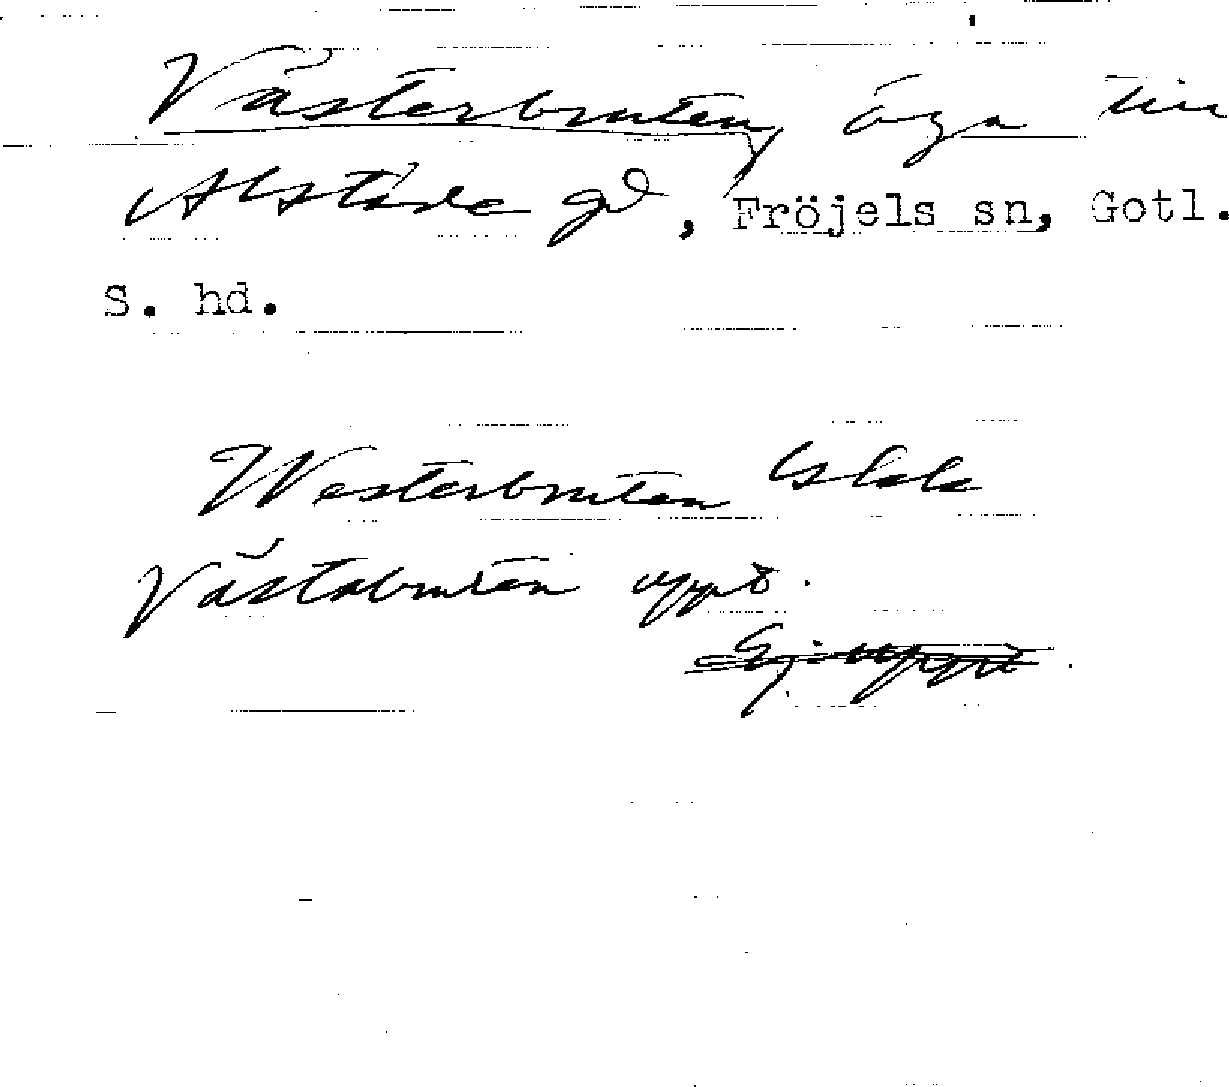 Västerbruten, äga till
Alstäde gd, Fröjels sn, Gotl.
S. hd.
Westerbruten lskk
Västabruten uppt.
Ej uppt.